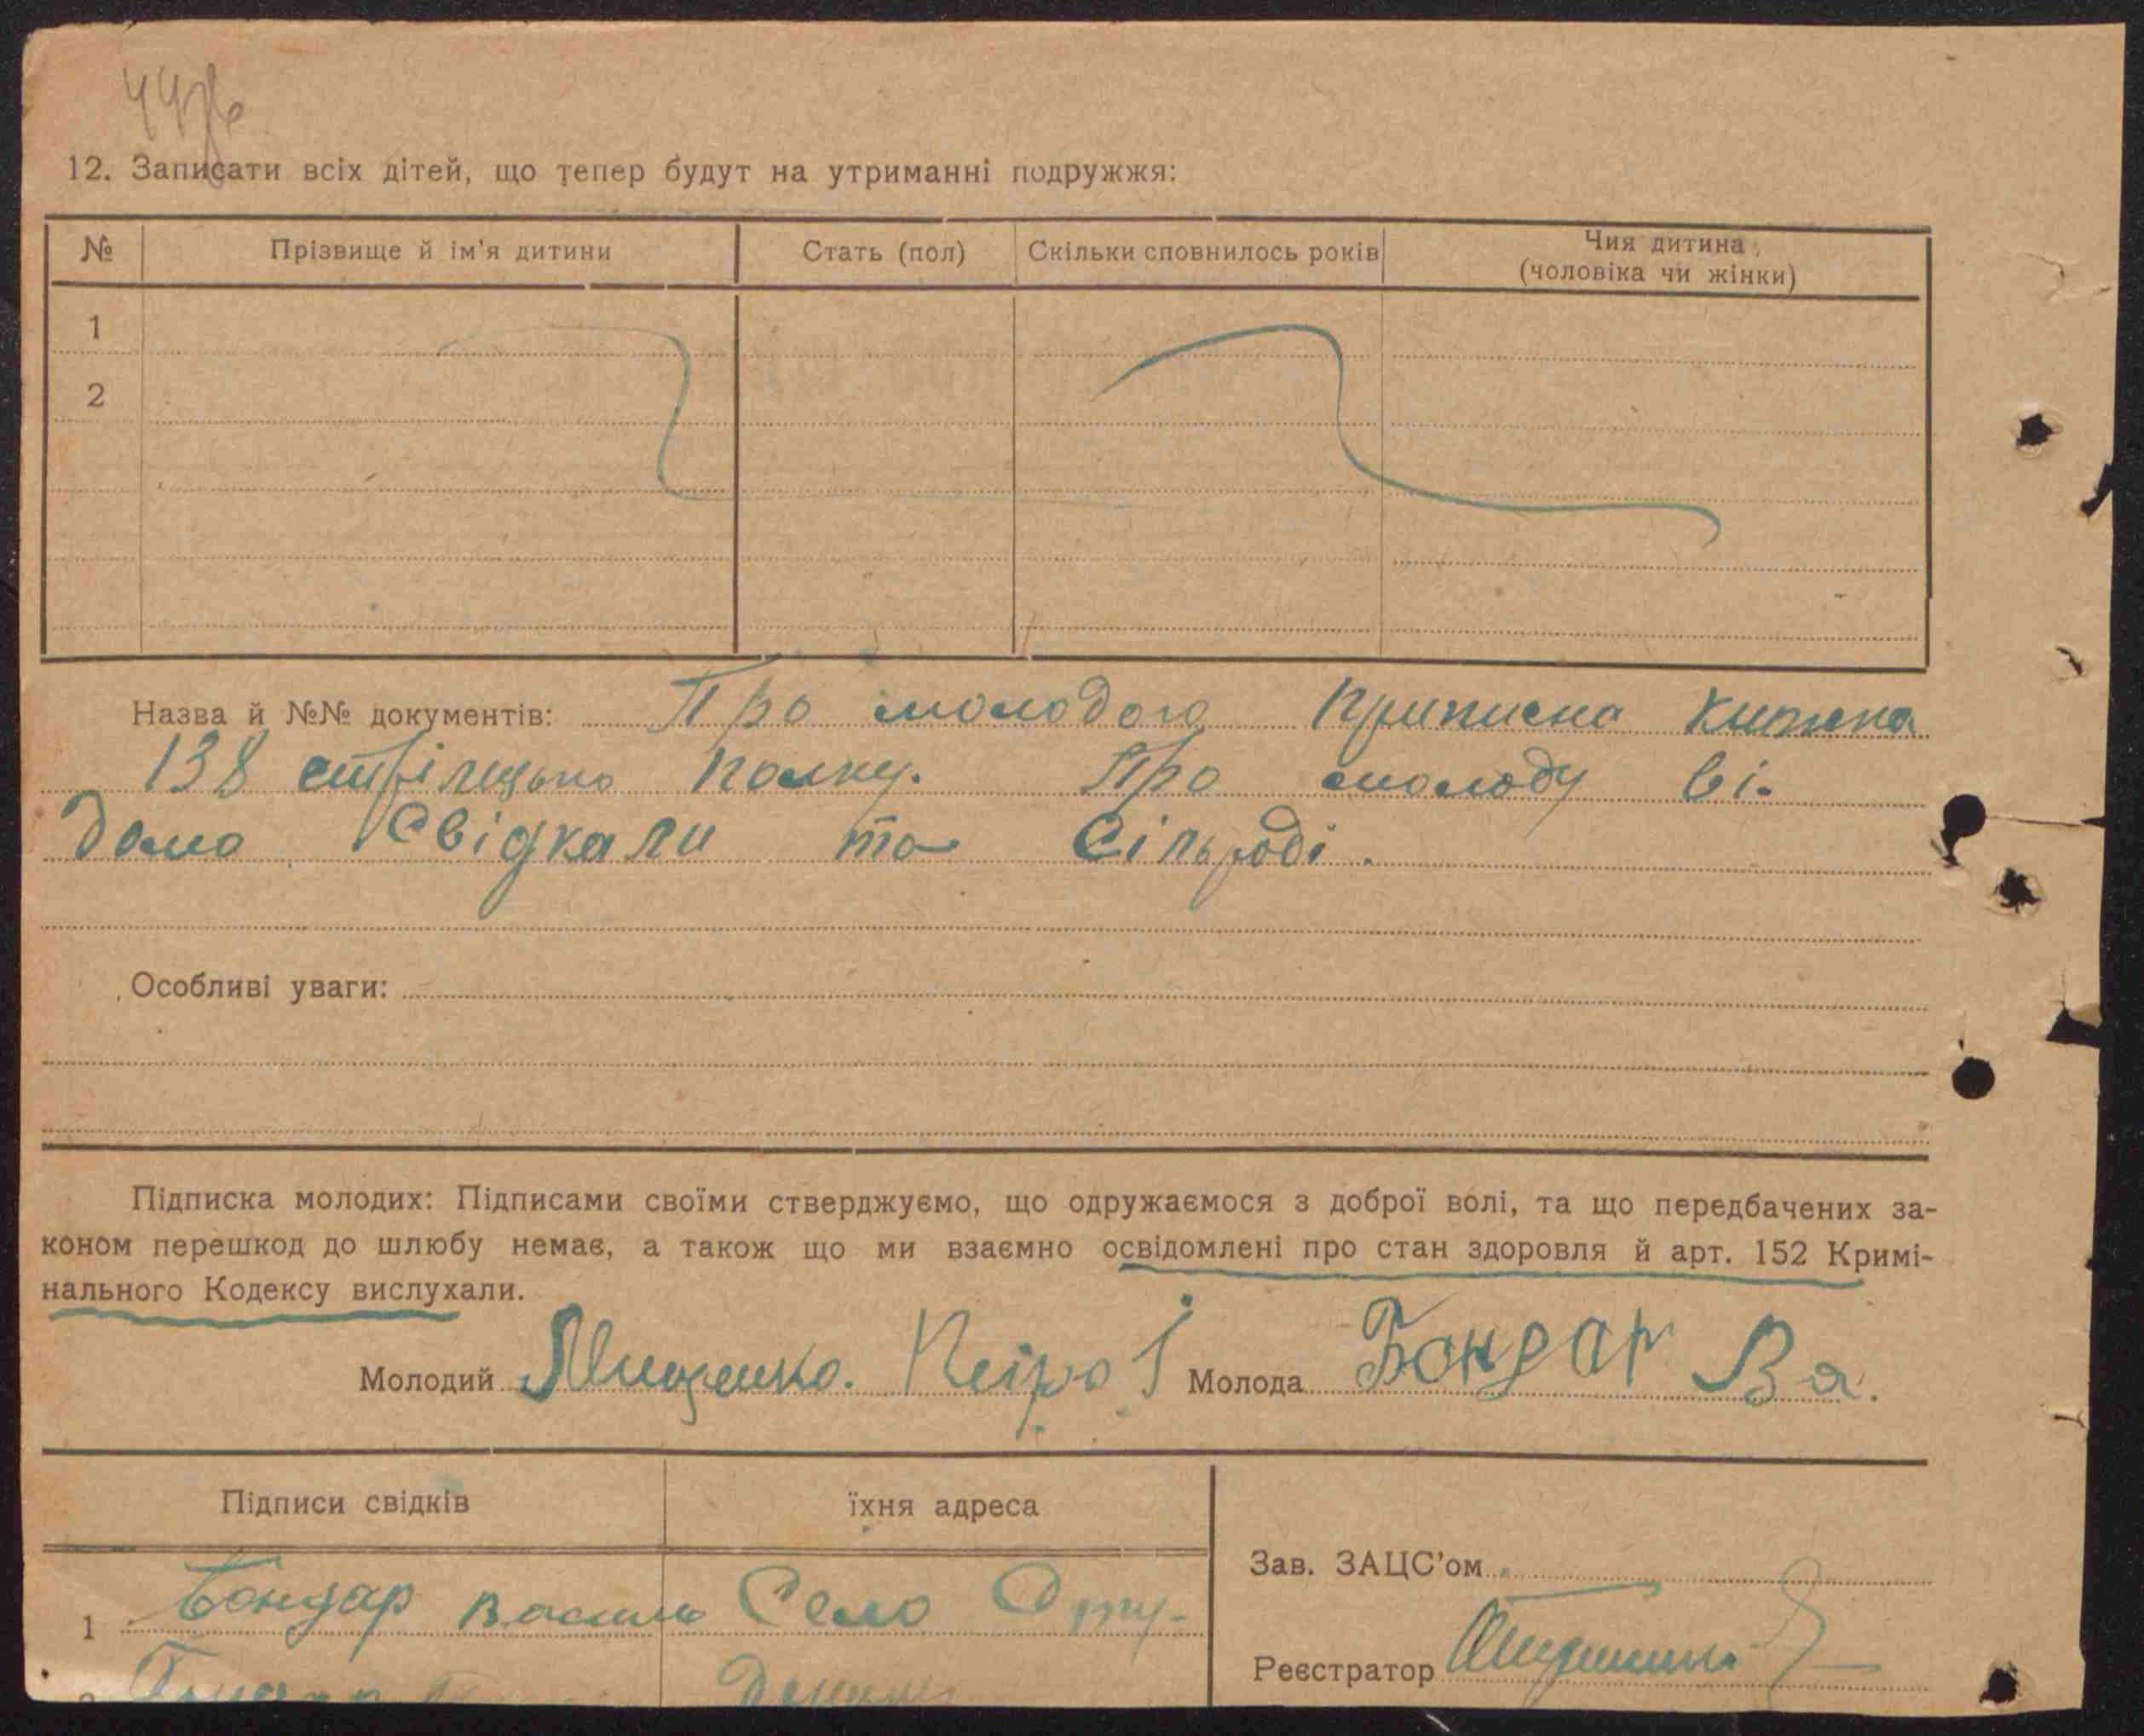 12. Записати всіх дітей, що тепер будут на утриманні подружжя:
№ Прізвище й ім'я дитини Стать (пол) Скільки сповнилось років Чия дитина
(чоловіка чи жінки)
1
2
Назва й №№ документів: Про молодого приписна книжка
138 стрілцько полку. Про молоду ві-
домо свідками та сільраді.
Особливі уваги:
Підписка молодих: Підписами своїми стверджуємо, що одружаємося з доброї волі, та що передбачених за-
коном перешкод до шлюбу немає, а також що ми взаємно освідомлені про стан здоровля й арт. 152 Кримі-
нального Кодексу вислухали.
Молодий Мищенко. Петро Молода Бондар Вя.
Підписи свідків їхня адреса
Зав. ЗАЦС'ом
1 Бондар Василь Село
Реєстратор